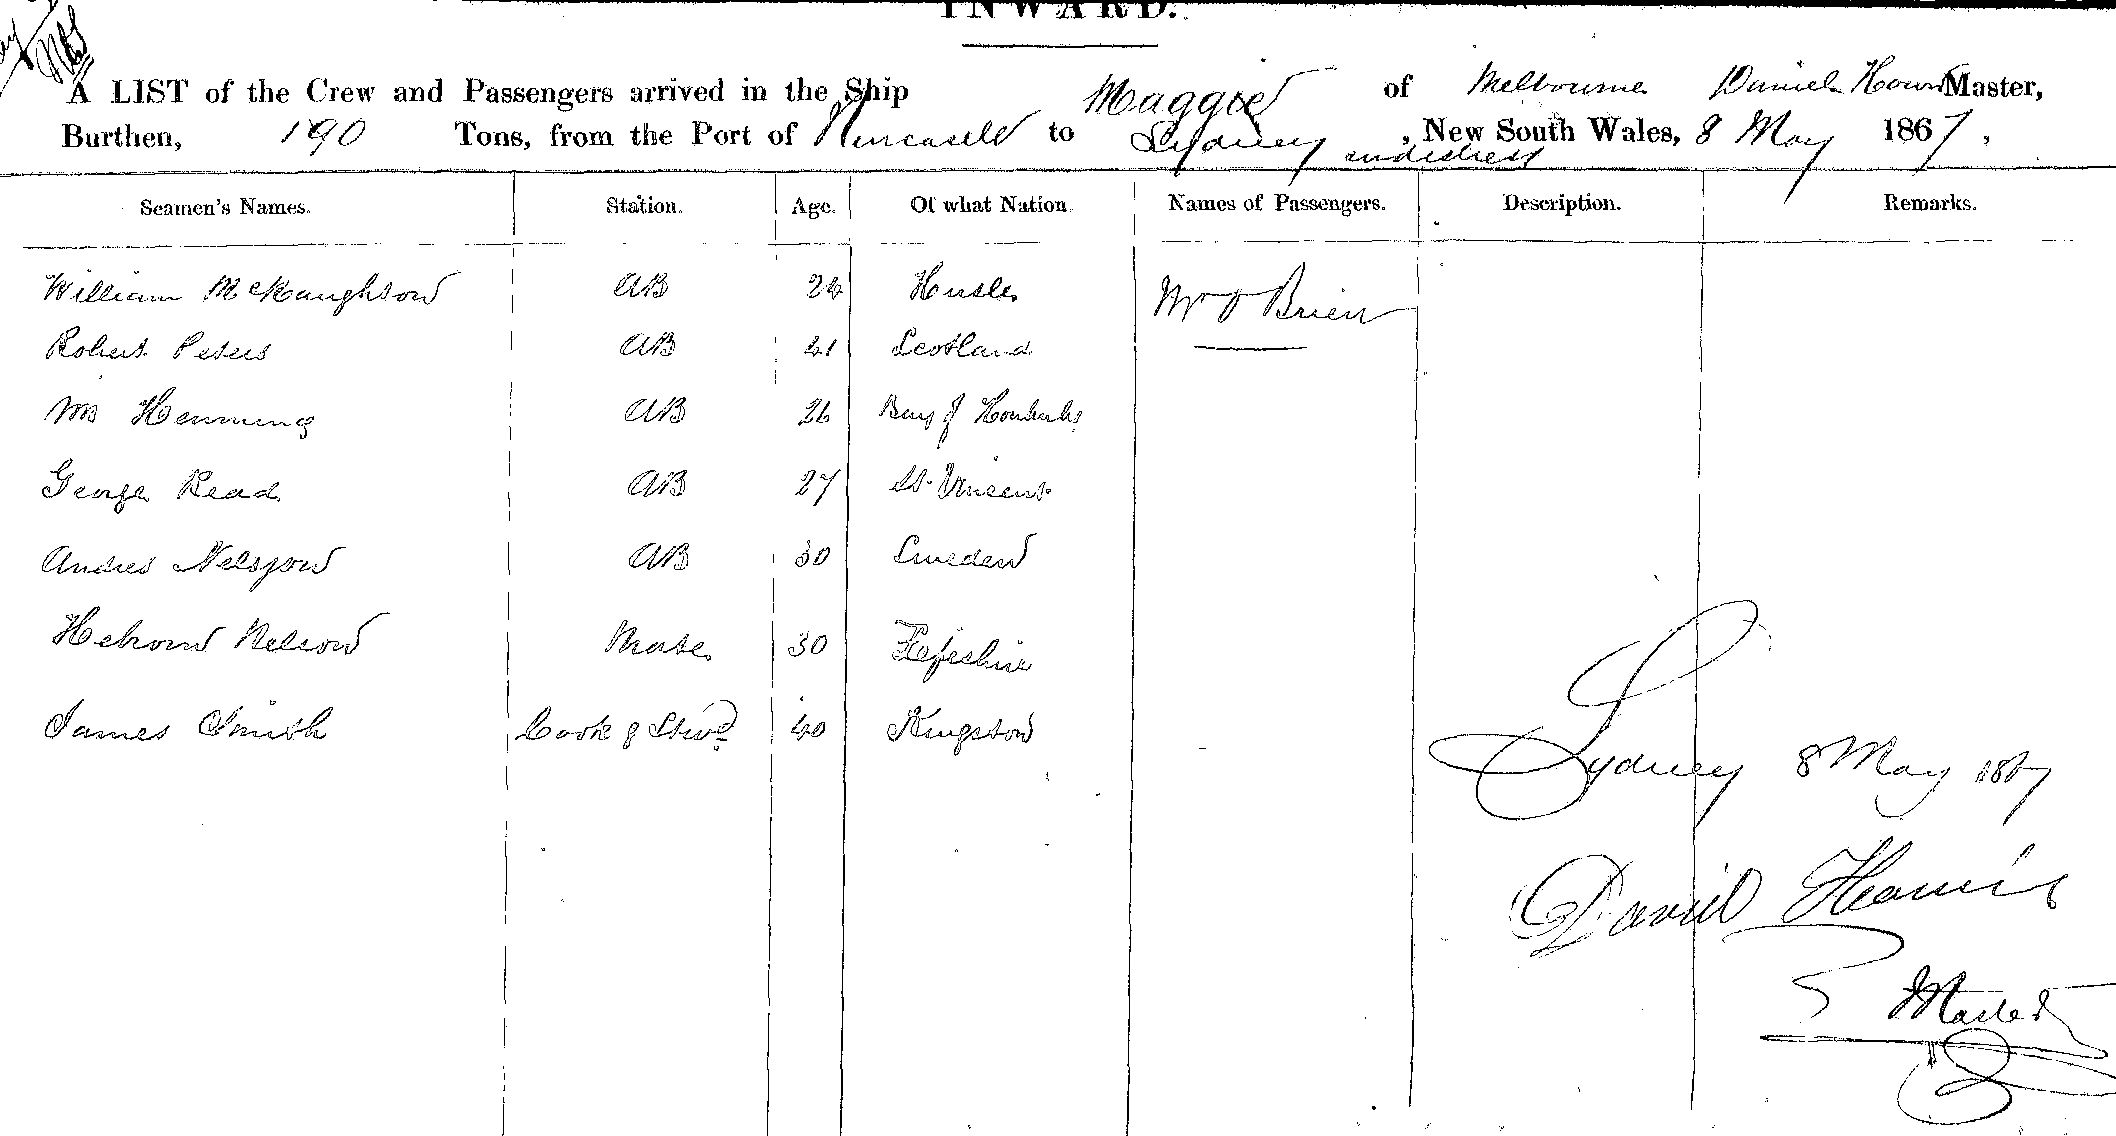 INWARD.
A LIST of the Crew and Passengers arrived in the Ship Maggie of Melbourne Daniel Master,
Burthen, 190 Tons, from the Port of Newcastle to Sydney, New South Wales, 8 May 1867,
in distress
Seamen's Names. Station. Age. Of what Nation. Names of Passengers. Description. Remarks.
William McNaughton AB 26 Mr O Brien
Robert Peters AB 41 Scotland
Wm Hemming AB 26 Bay of
George Read AB 27 St. Vincent
Andres AB 30 Sweden
Nelson Mate 30
James Smith Cook & Stwd 40 Kingston
Sydney 8 May 1867
Master